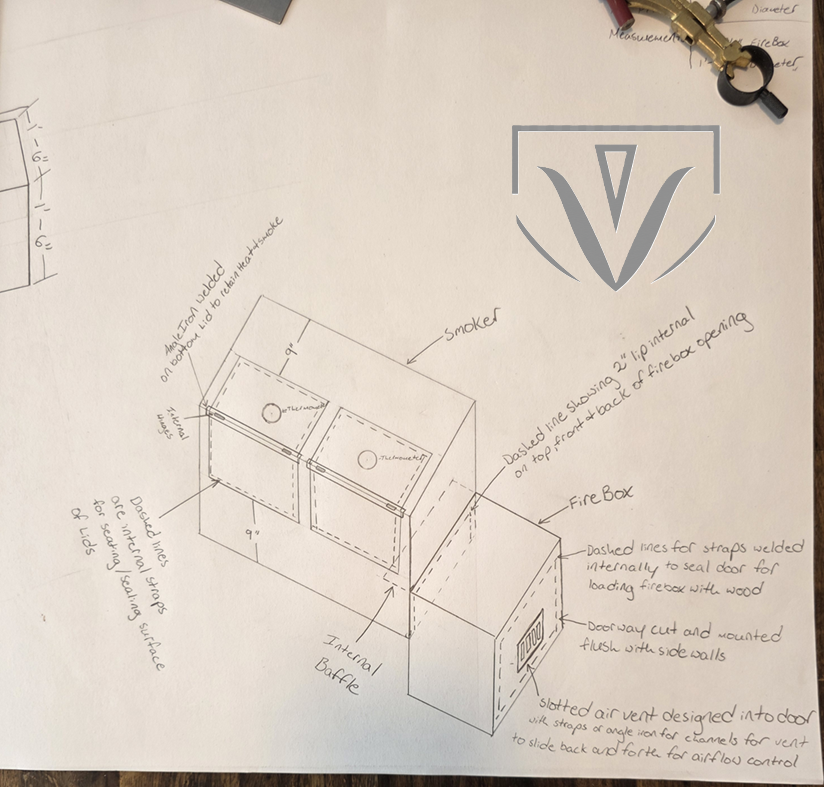 Diameter
Measurement
FireBox
1'-
6"
1'-
6"
Angle Iron welded
on bottom lid to retain Heat & smoke
9"
Smoker
Internal
Hinges
Thermometer
Thermometer
Dashed line showing 2" lip internal
on top, front & back of firebox opening
FireBox
Dashed lines
are internal straps
for seating/sealing surface
of Lids
9"
Dashed lines for straps welded
internally to seal door for
loading firebox with wood
Internal
Baffle
Doorway cut and mounted
flush with side walls
slotted air vent designed into door
with straps or angle iron for channels for vent
to slide back and forth for airflow control